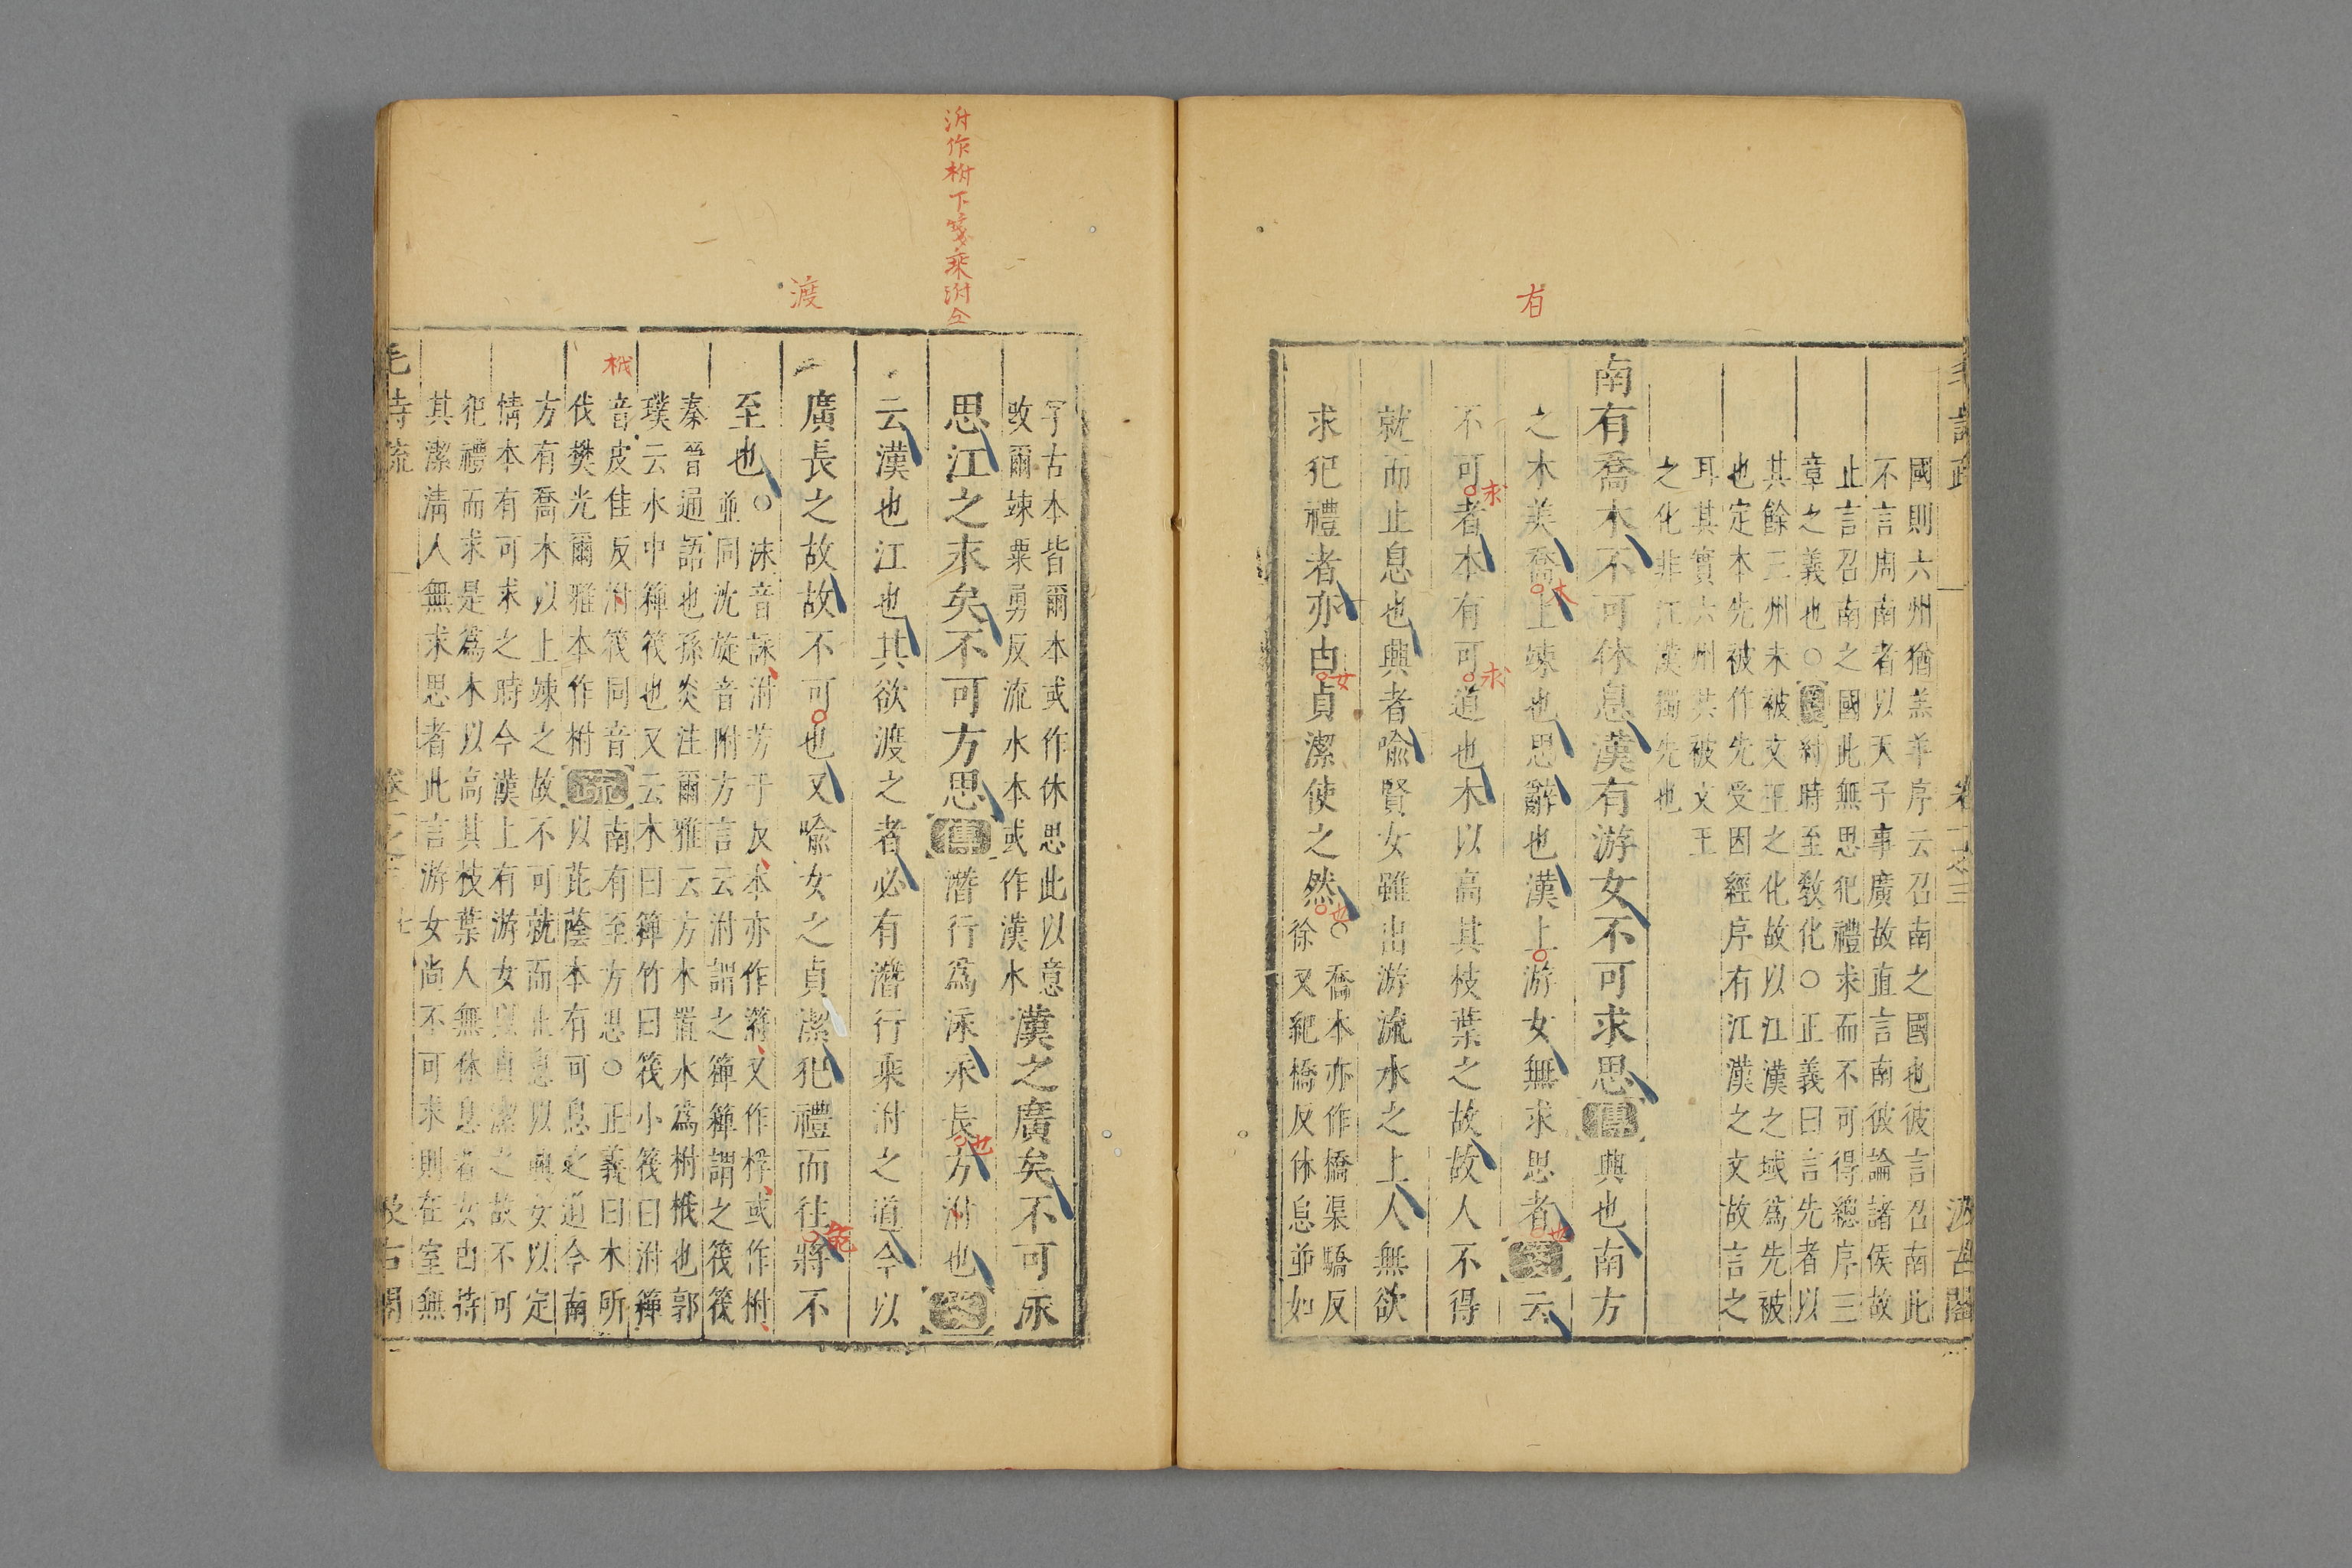 毛詩疏 卷一之三 汲古閣
國則六州猶羔羊序云召南之國也彼言召南此
不言周南者以天子事廣故直言南彼論諸侯故
止言召南之國此無思犯禮求而不可得總序三
章之義也○箋紂時至教化○正義曰言先者以
其餘三州未被文王之化故以江漢之域爲先被
也定本先被作先受因經序有江漢之文故言之
耳其實六州共被文王
之化非江漢獨先也
南有喬木不可休息漢有游女不可求思傳興也南方
之木美喬上竦也思辭也漢上游女無求思者箋云
不可者本有可道也木以高其枝葉之故故人不得
就而止息也興者喻賢女雖出游流水之上人無欲
求犯禮者亦由貞潔使之然
喬木亦作橋渠驕反
徐又紀橋反休息並如
有
木
也
求
求
女
也
字古本皆爾本或作休思此以意
改爾竦粟勇反流水本或作漢水
漢之廣矣不可泳
思江之永矣不可方思傳潛行爲泳永長方泭也箋
云漢也江也其欲渡之者必有潛行乘泭之道今以
廣長之故故不可也又喻女之貞潔犯禮而往將不
至也
○泳音詠泭芳于反本亦作䉤又作桴或作柎
並同沈旋音附方言云泭謂之䉬䉬謂之筏筏
秦晉通語也孫炎注爾雅云方木置水爲柎栰也郭
璞云水中䉬筏也又云木曰䉬竹曰筏小筏曰泭䉬
音皮佳反泭筏同音
伐樊光爾雅本作柎
疏
南有至方思○正義曰木所
以芘蔭本有可息之道今南
方有喬木以上竦之故不可就而止息以興女以定
情本有可求之時今漢上有游女以貞潔之故不可
犯禮而求是爲木以高其枝葉人無休息者女由持
其潔淸人無求思者此言游女尙不可求則在室無
毛詩疏 卷一之三 七 汲古閣
泭作柎下箋乘泭仝
渡
栰
也